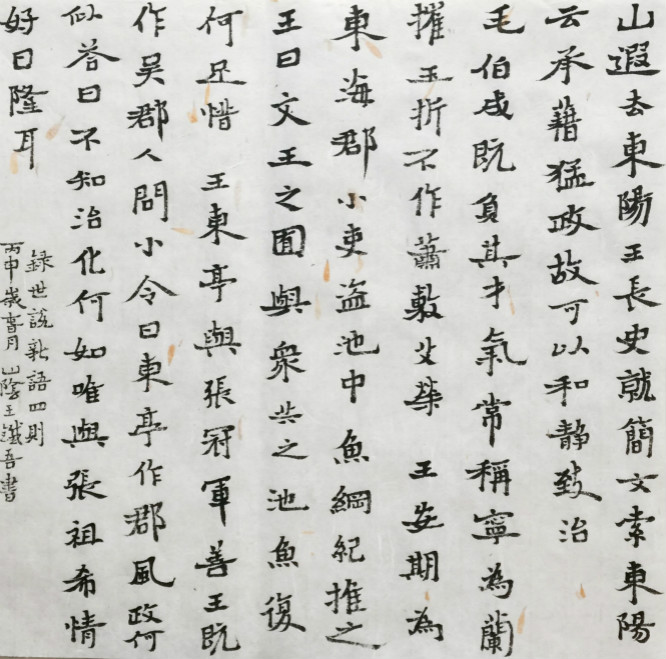 山遐去東陽王長史就簡文索東陽
云承藉猛政故可以和静致治
毛伯成既負其才氣常稱寧為蘭
摧玉折不作蕭敷艾榮 王安期為
東海郡小吏盜池中魚綱紀推之
王曰文王之囿與衆共之池魚復
何足惜 王東亭與張冠軍善王既
作吴郡人問小令曰東亭作郡風政何
似答曰不知治化何如唯與張祖希情
好日隆耳
録世說新語四則
丙申歲 月山陰王 吾書